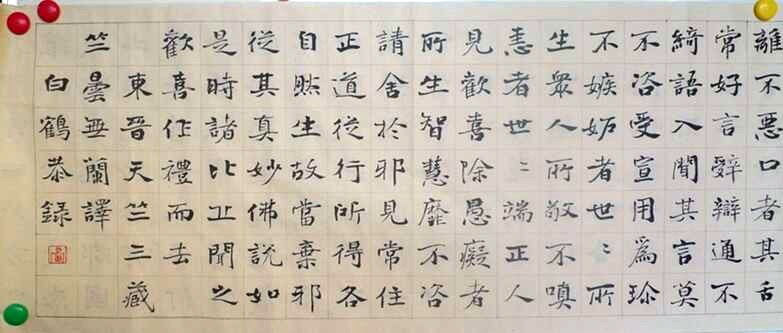 離不惡口者其舌
常好言辭辯通不
綺語入聞其言莫
不咨受宣用為珍
不嫉妬者世〻所
生眾人所敬不嗔
恚者世〻端正人
見歡喜除愚癡者
所生智慧靡不咨
請舍於邪見常住
正道從行所得各
自然生故當棄邪
從其真妙佛說如
是時諸比丘聞之
歡喜作禮而去
東晉天竺三藏
竺曇無蘭譯
白鶴恭錄